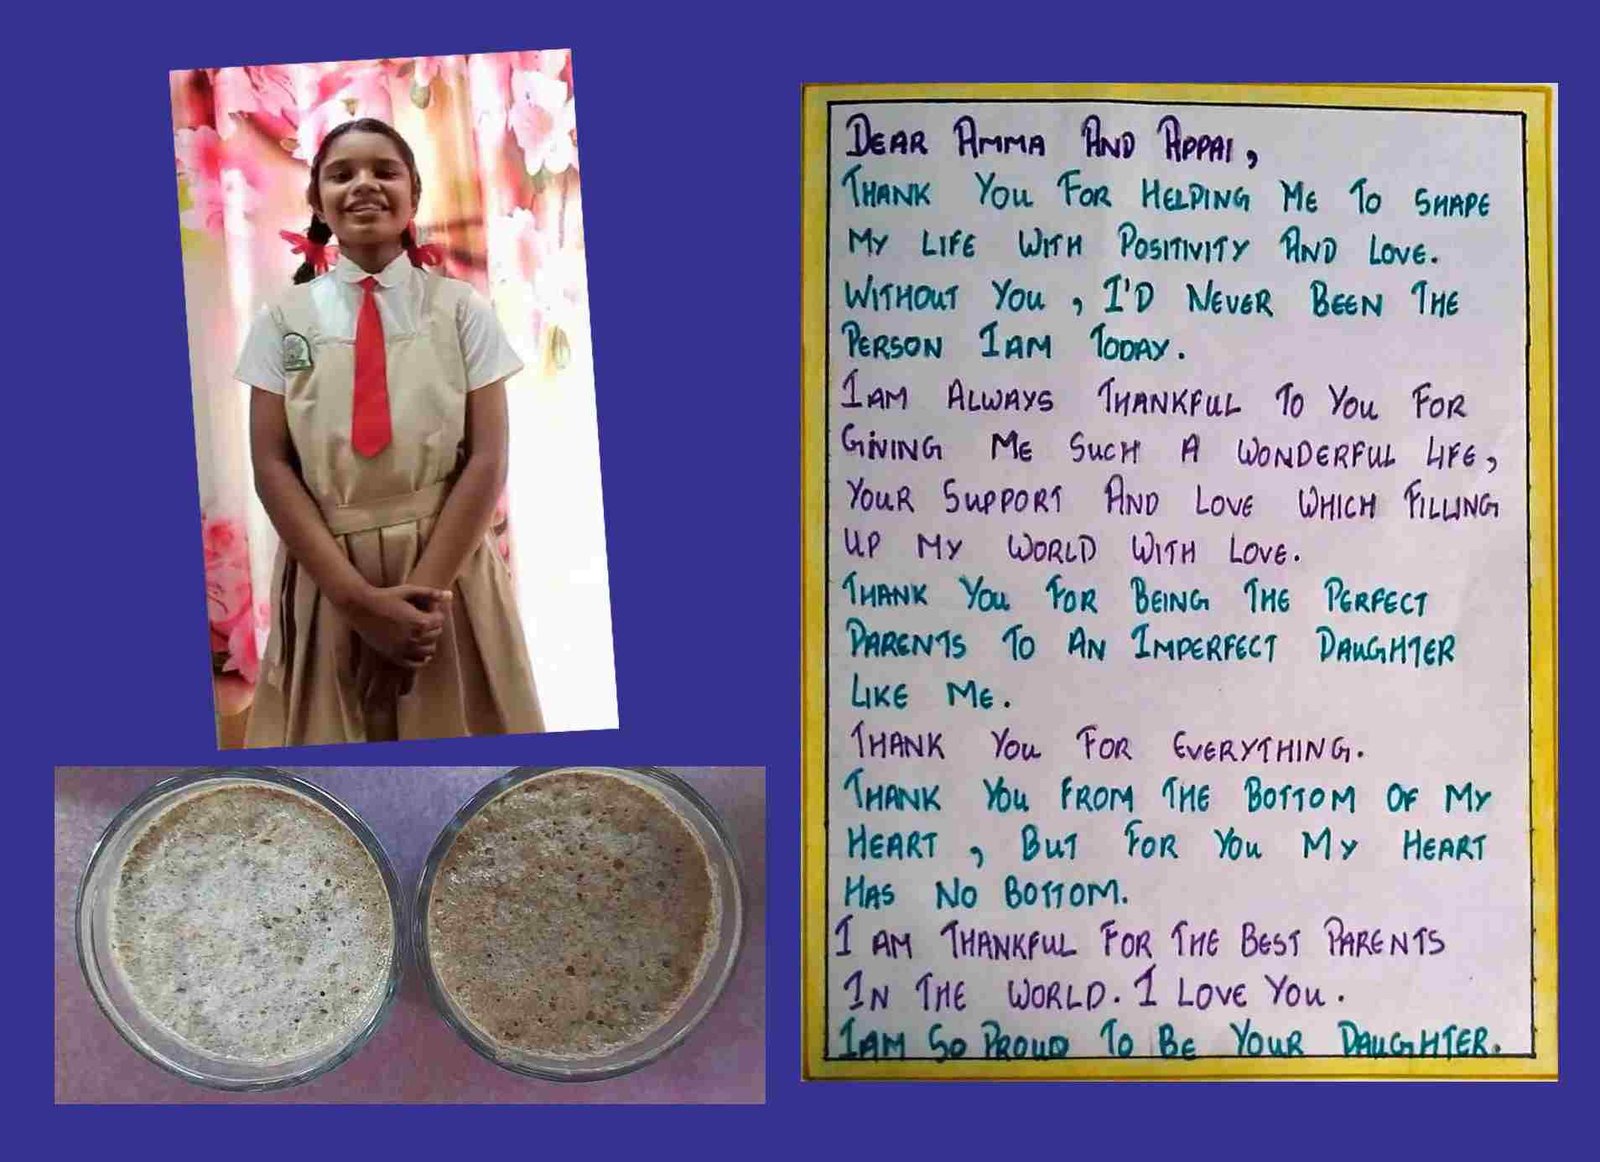 DEAR AMMA AND APPAI,
THANK YOU FOR HELPING ME TO SHAPE
MY LIFE WITH POSITIVITY AND LOVE.
WITHOUT YOU, I'D NEVER BEEN THE
PERSON I AM TODAY.
I AM ALWAYS THANKFUL TO YOU FOR
GIVING ME SUCH A WONDERFUL LIFE,
YOUR SUPPORT AND LOVE WHICH FILLING
UP MY WORLD WITH LOVE.
THANK YOU FOR BEING THE PERFECT
PARENTS TO AN IMPERFECT DAUGHTER
LIKE ME.
THANK YOU FOR EVERYTHING.
THANK YOU FROM THE BOTTOM OF MY
HEART, BUT FOR YOU MY HEART
HAS NO BOTTOM.
I AM THANKFUL FOR THE BEST PARENTS
IN THE WORLD. I LOVE YOU.
I AM SO PROUD TO BE YOUR DAUGHTER.